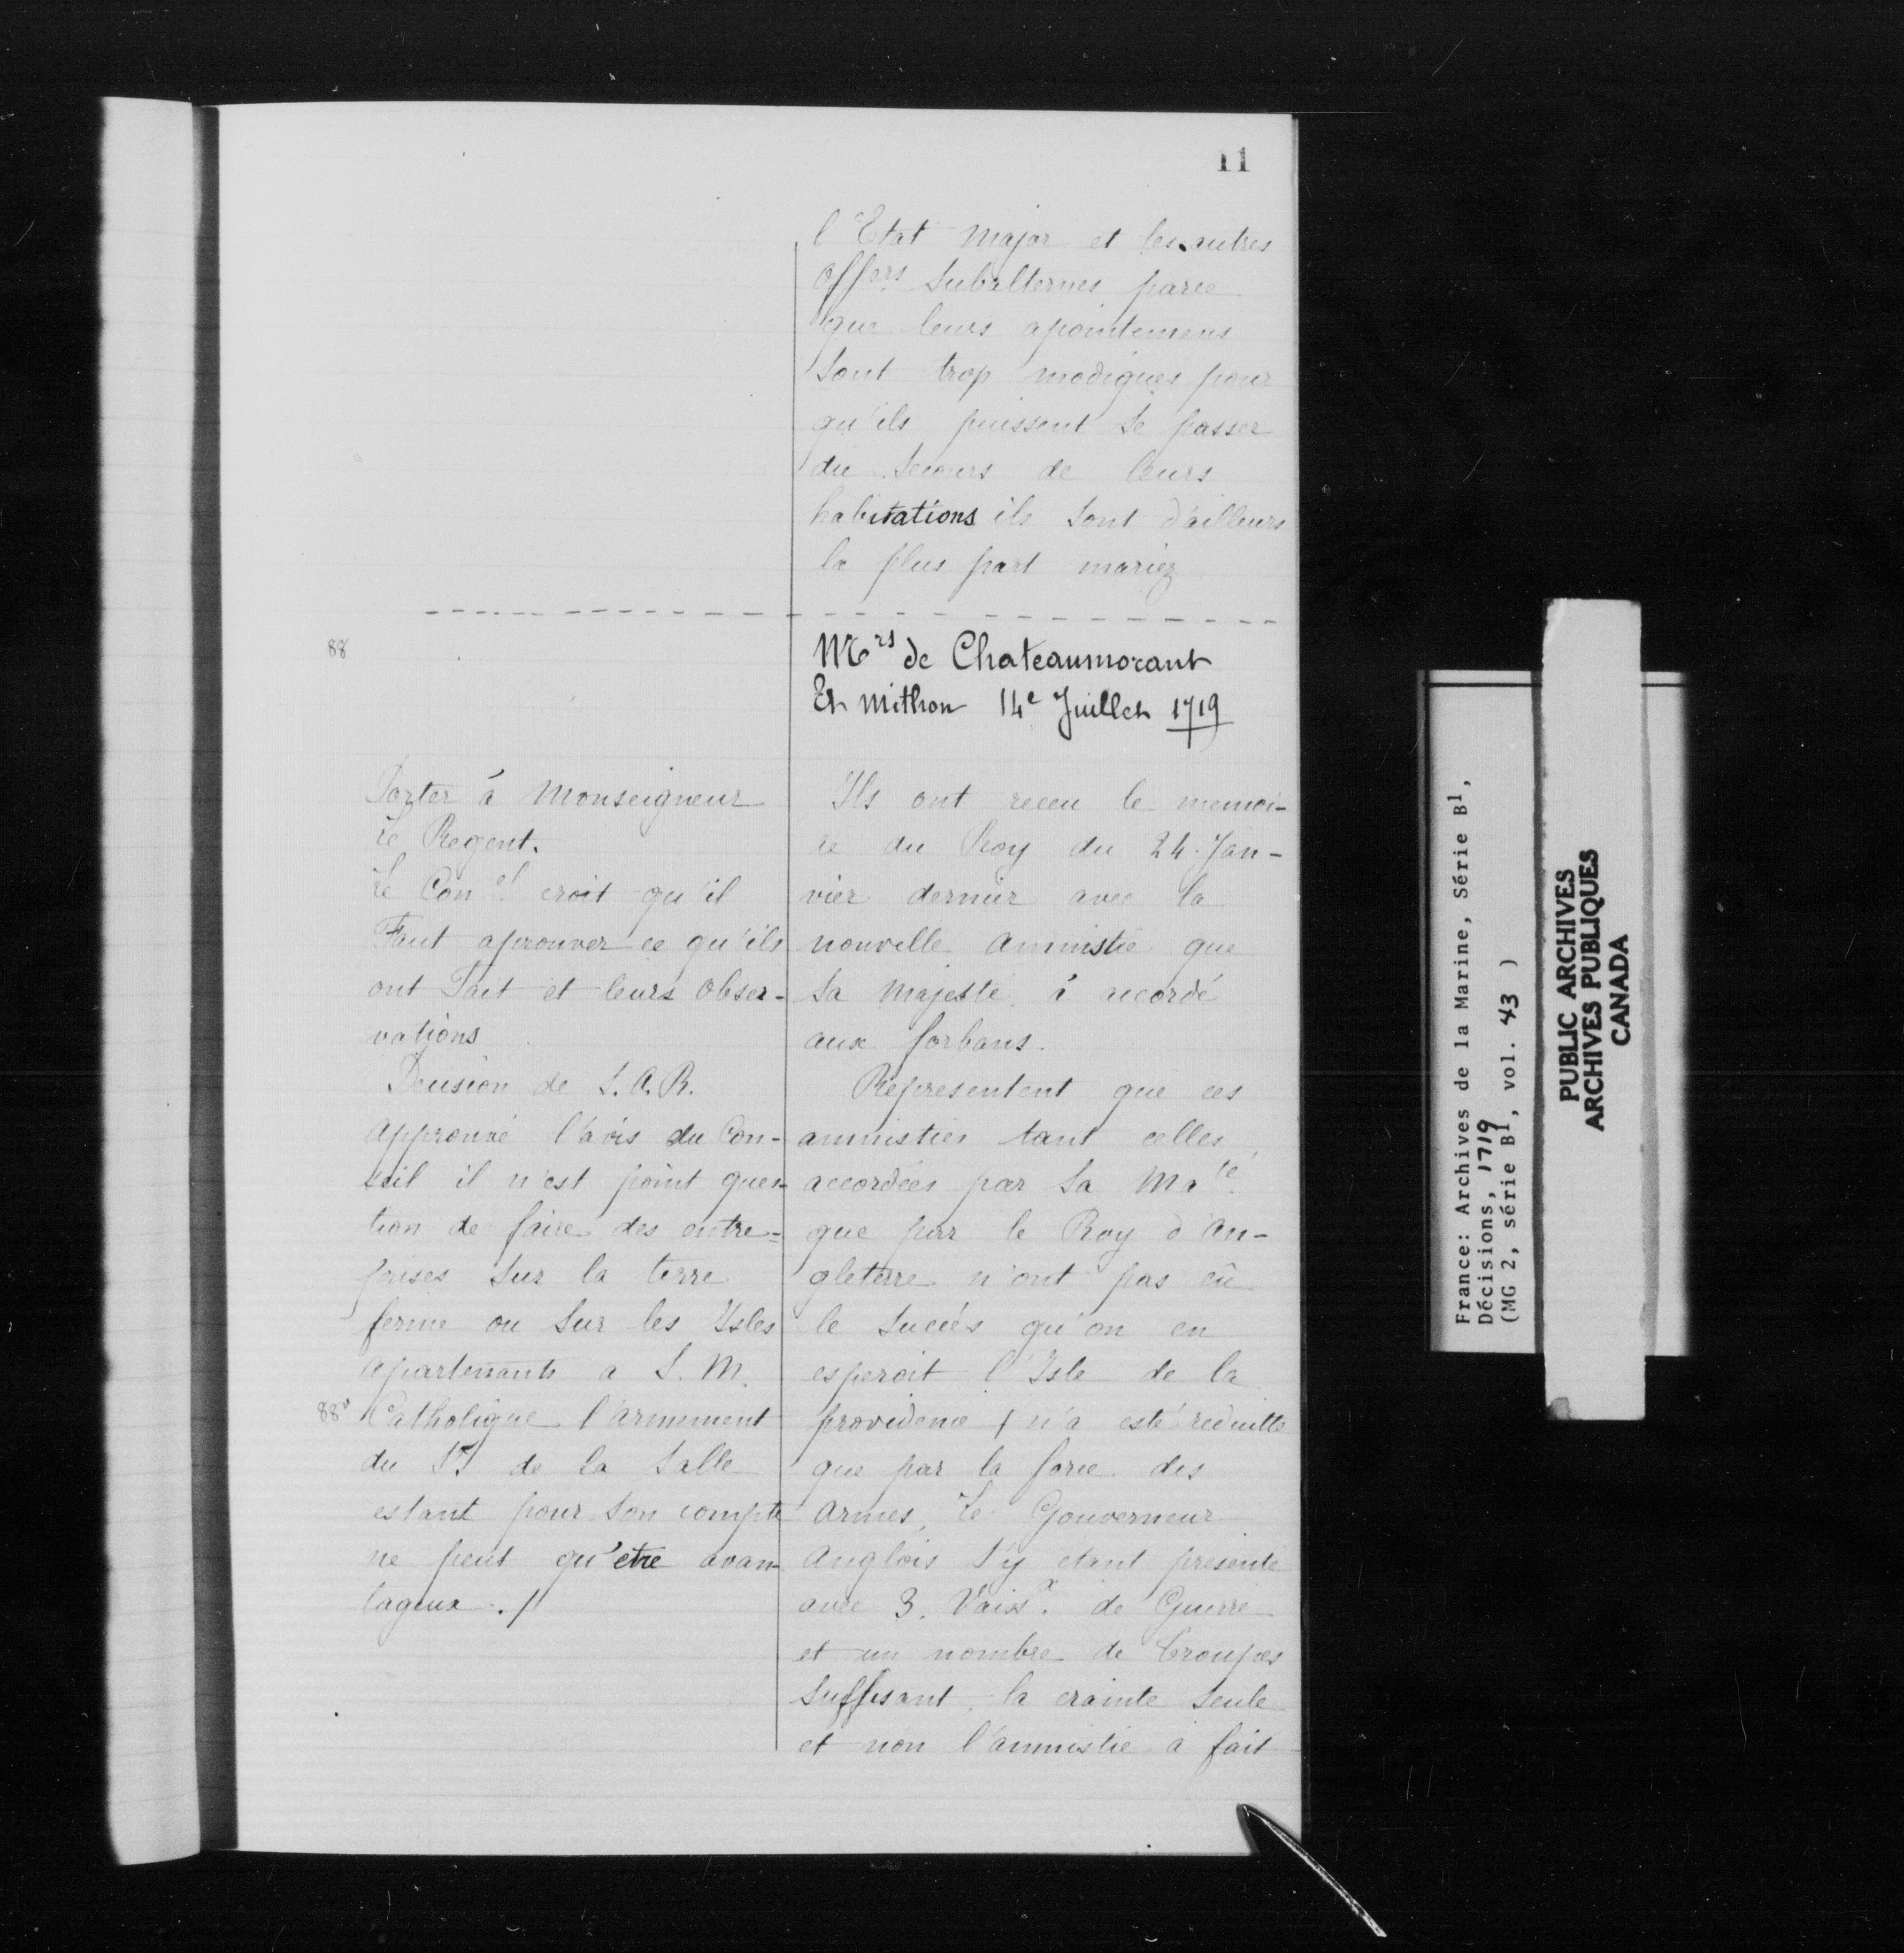 11
l'Etat major et les autres
offers subalternes parce
que leurs apointemens
sont trop modiques pour
qu'ils puissent se passer
du secours de leurs
habitations ils sont d'ailleurs
la plus part mariez
88
Mrs de Chateaumorant
Et Mithon 14e Juillet 1719
Porter á Monseigneur
le Regent.
Le Conel croit qu'il
Faut aprouver ce qu'ils
ont Fait et leurs obser-
vations
Decision de S. A. R.
Approuvé l'avis du Con-
seil il n'est point ques-
tion de faire des entre=
prises sur la terre
ferme ou sur les Isles
apartenants a S. M.
88v Catholique l'armement
du Sr. de la Salle
estant pour son compte
ne peut qu'etre avan-
tageux ./
Ils ont receu le memoi-
re du Roy du 24. Jan-
vier dernier avec la
nouvelle amnistie que
Sa Majesté á accordé
aux forbans.
Representent que ces
amnisties tant celles
accordées par Sa Mate
que par le Roy d'An-
gleterre n'ont pas eû
le succés qu'on en
esperoit l'Isle de la
providence / n'a esté reduitte
que par la force des
armes, Le Gouverneur
anglois s'y etant presenté
avec 3. Vaissx. de Guerre
et un nombre de Troupes
suffisant, la crainte seule
et non l'amnistie á fait
France: Archives de la Marine, Série B1,
Décisions, 1719
(MG 2, série B1, vol. 43 )
PUBLIC ARCHIVES
ARCHIVES PUBLIQUES
CANADA